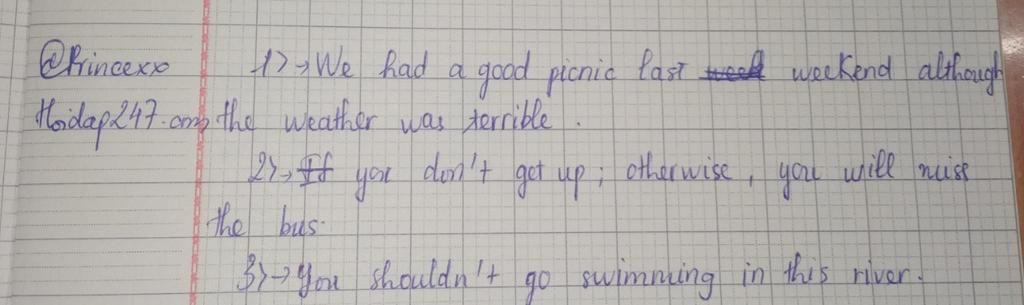 @Princexx 1> → We had a good picnic last week weekend although
Hoidap247.com the weather was terrible.
2> → If you don't get up; otherwise, you will miss
the bus.
3> → You shouldn't go swimming in this river.